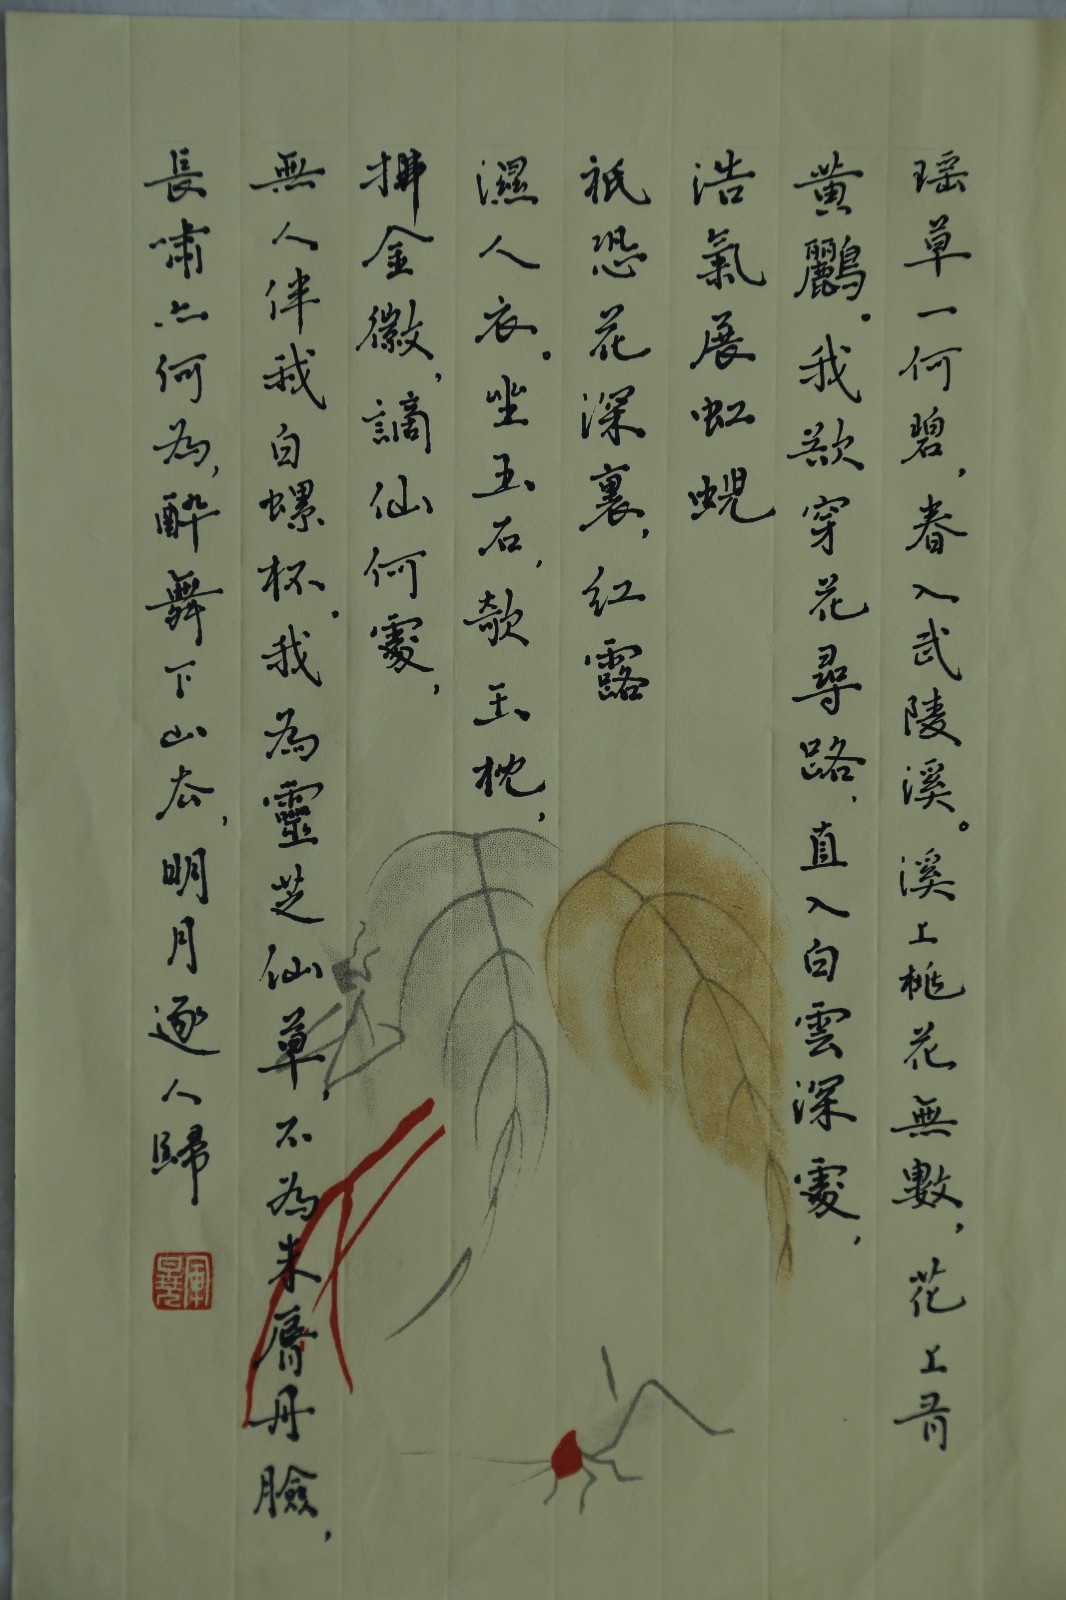 瑶草一何碧，春入武陵溪。溪上桃花無數，花上有
黄鸝。我欲穿花尋路，直入白雲深處，
浩氣展虹蜺
祇恐花深裏，紅露
濕人衣。坐玉石，欹玉枕，
拂金徽，謫仙何處，
無人伴我白螺杯。我為靈芝仙草，不為朱唇丹臉，
長嘯亦何為，醉舞下山去，明月逐人歸